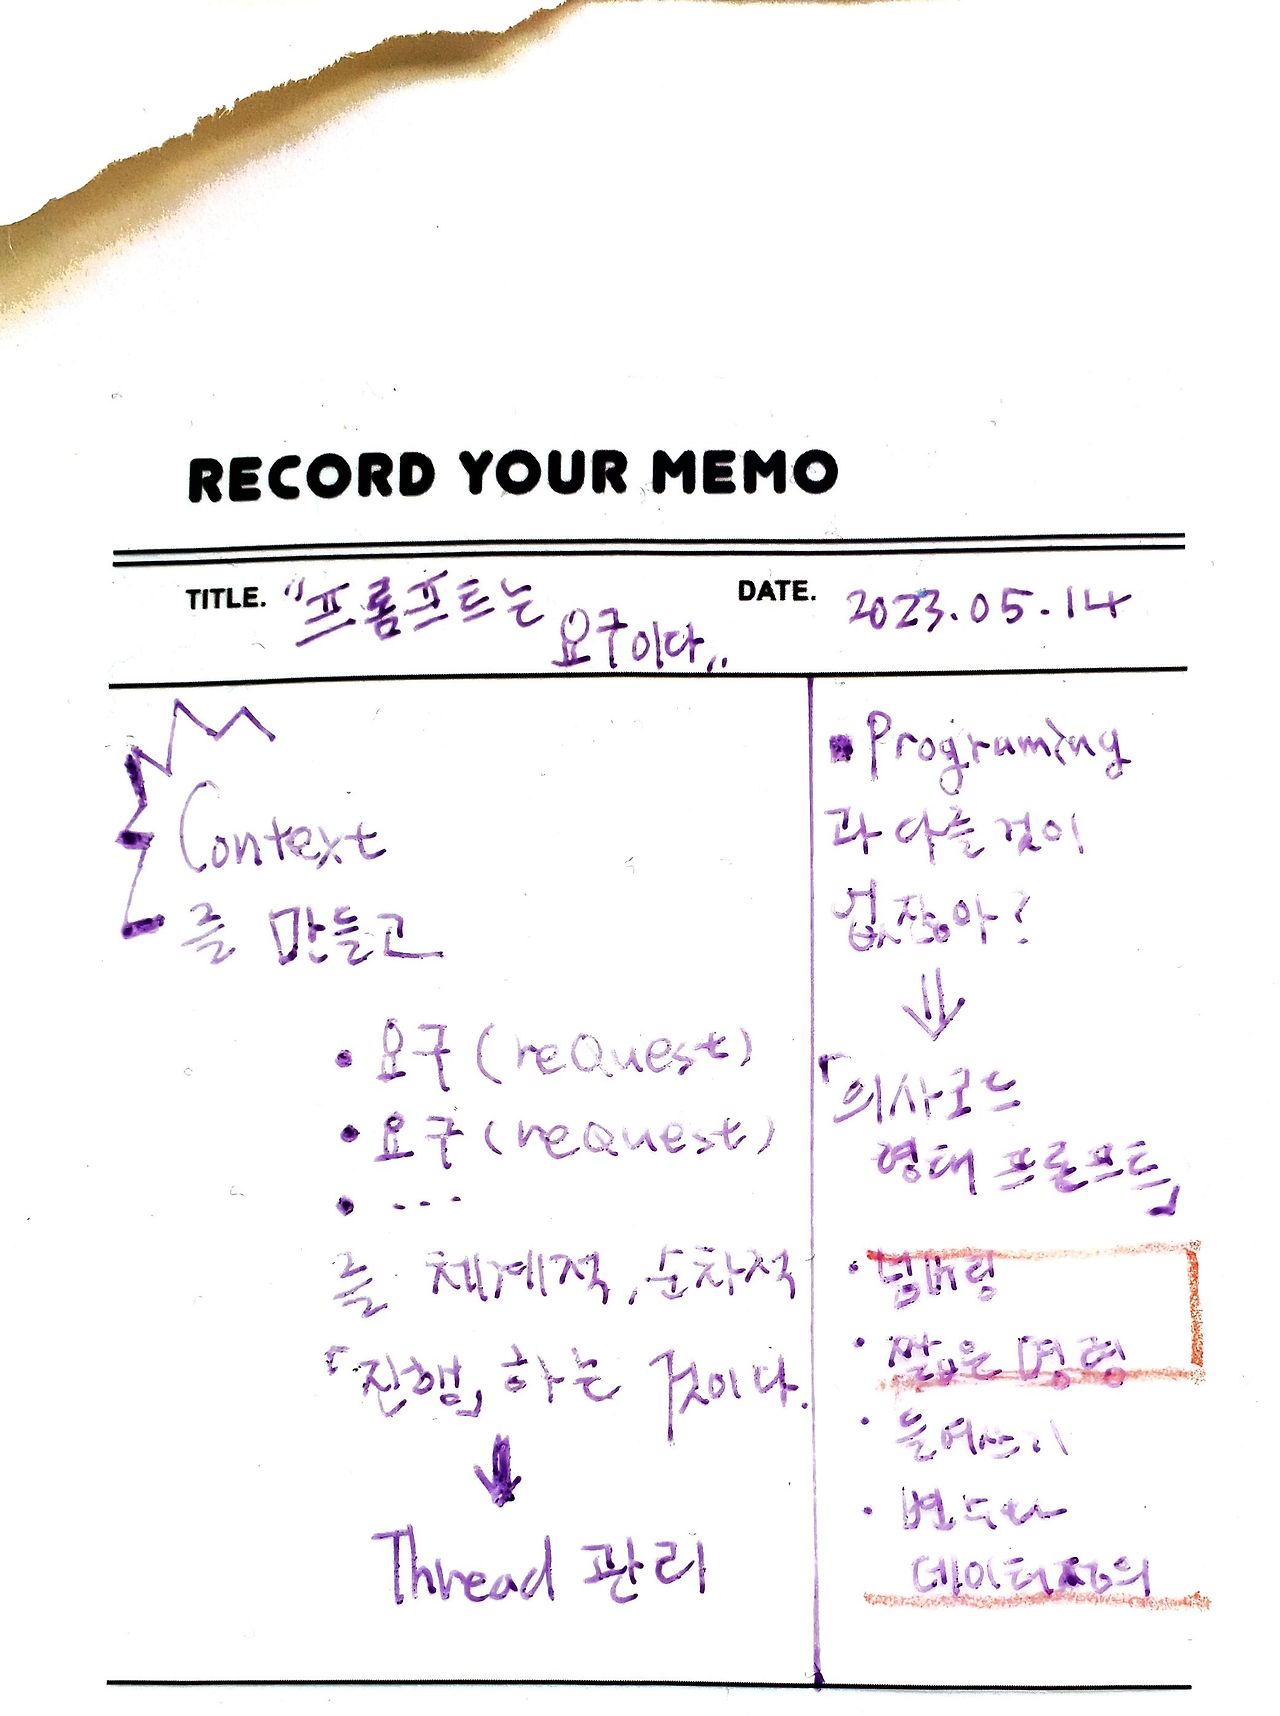 RECORD YOUR MEMO
TITLE. "프롬프트는
요구이다„
DATE. 2023.05.14
Context
를 만들고
• 요구 (reQuest)
• 요구 (reQuest)
• ...
를 체계적, 순차적
「진행」 하는 것이다.
Thread 관리
▪ Programing
과 다를 것이
없잖아?
「의사코드
형태 프롬프트」
• 넘버링
• 짧은 명령
• 들여쓰기
• 변수나
데이터정의